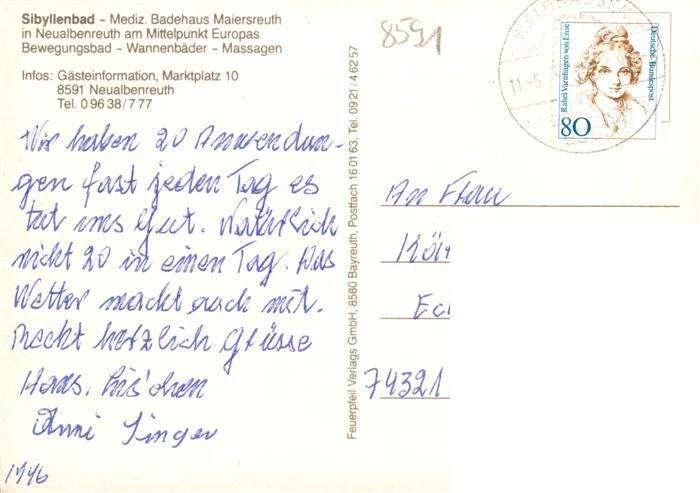 Sibyllenbad – Mediz. Badehaus Maiersreuth
in Neualbenreuth am Mittelpunkt Europas
Bewegungsbad – Wannenbäder – Massagen
Infos: Gästeinformation, Marktplatz 10
8591 Neualbenreuth
Tel. 0 96 38 / 7 77
Wir haben 20 Anwendun-
gen fast jeden Tag es
tut uns Gut. Natürlich
nicht 20 in einen Tag. Das
Wetter macht auch mit.
Recht herzlich Grüsse
Hans,
Anni Singer
1996
Feuerpfeil Verlags GmbH, 8580 Bayreuth, Postfach 16 01 63, Tel. 09 21 / 4 82 57
8591
11.-5.
Rahel Varnhagen von Ense
Deutsche Bundespost
80
An Frau
74321